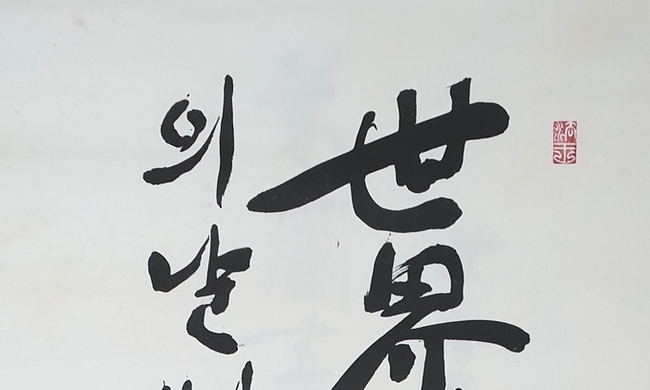 世界
의날